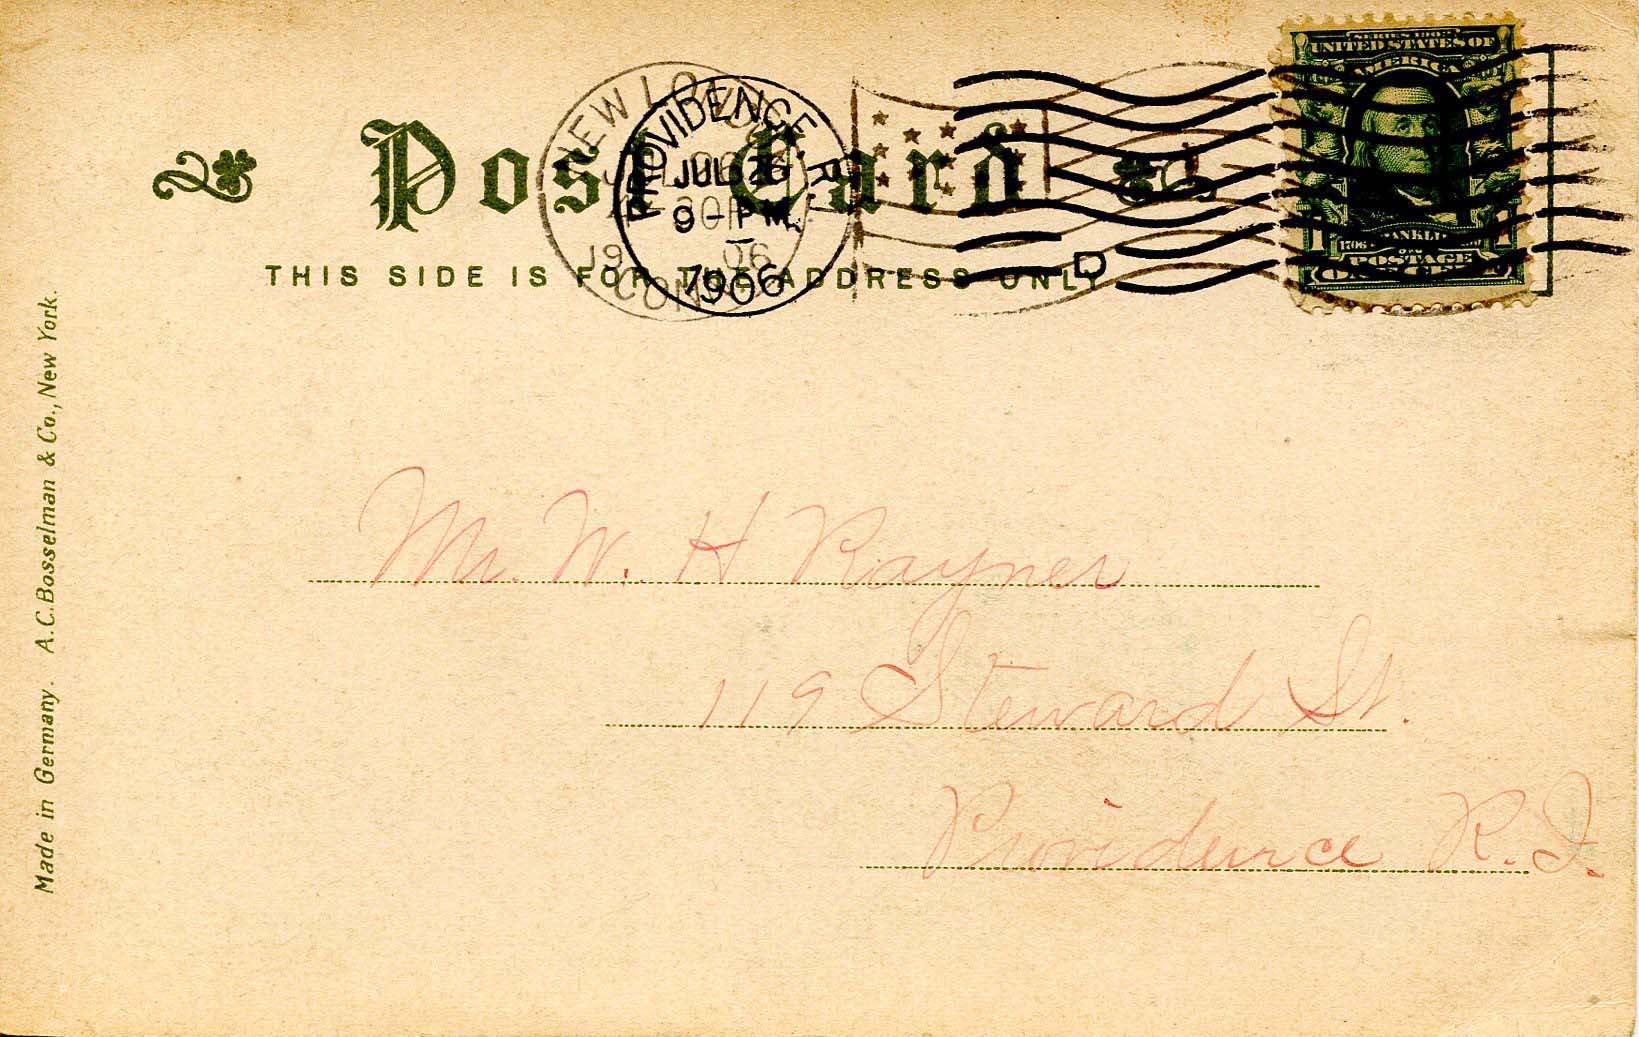 SERIES 1902
UNITED STATES OF
AMERICA
Post Card
NEW LONDON
CONN
19 06
PROVIDENCE, R.I.
JUL 26
9 - PM
1906
D
1706 FRANKLIN 1790
1 1
POSTAGE
ONE CENT
THIS SIDE IS FOR THE ADDRESS ONLY
Made in Germany. A.C. Bosselman & Co., New York.
Mr. W. H Rayner
119 Steward St.
Providence R.I.